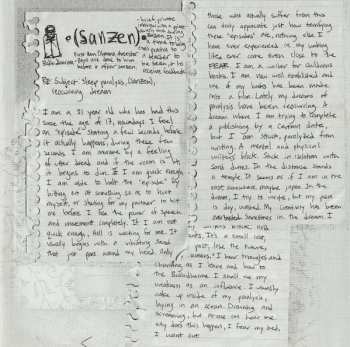 (Sanzen)
- brief, private
interview with a zen
master
time to
to the
zen, or to
receive feedback
First Zen Dharma Ancestor
Bodhidharma
before or after Sanzen
RE: Subject - Sleep paralysis, (Sanzen),
reoccurring dream
I am a 31 year old who has had this
since the age of 17, nowadays I feel
an "episode" starting a few seconds before
it actually happens, during these few
seconds I am overcome by a feeling
of utter dread and if the room is lit,
it begins to dim. If I am quick enough
I am able to halt the "episode" by
biting at
myself, or shouting for my partner to hit
me before I lose the power of speech
and movement completely. If I am not
quick enough, Hell is waiting for me. It
usually begins with a vibrating sound
that just goes round my head. Only
those who actually suffer from this
can truly appreciate just how terrifying
these "episodes" are, nothing else I
have ever experienced in my waking
life ever come even close to the
FEAR. I am a writer for childrens
books. I am now well established and
one of my books has been made
into a film. Lately my dreams of
paralysis have been reoccurring. A
dream where I am trying to complete
a publishing by a certain date,
but I am stuck, paralysed from
writing. A mental and physical
writers block. Stuck in isolation with
sand dunes. In the distance stands
a temple. It seems as if I am in the
east somewhere, maybe Japan. In the
dream, I try to write, but my pen
is dry. My creativity has been
exhausted. Sometimes in the dream, I
it's a small cat,
past, like the future,
I hear triangles and
chanting as I kneel and bow to
the Bodhidharma. I smell via my
weakness as an influence. I usually
wake up inside of my paralysis,
laying in an ocean. Drowning and
screaming, but no one can hear me.
Why does this happen, I fear my bed.
I want out.